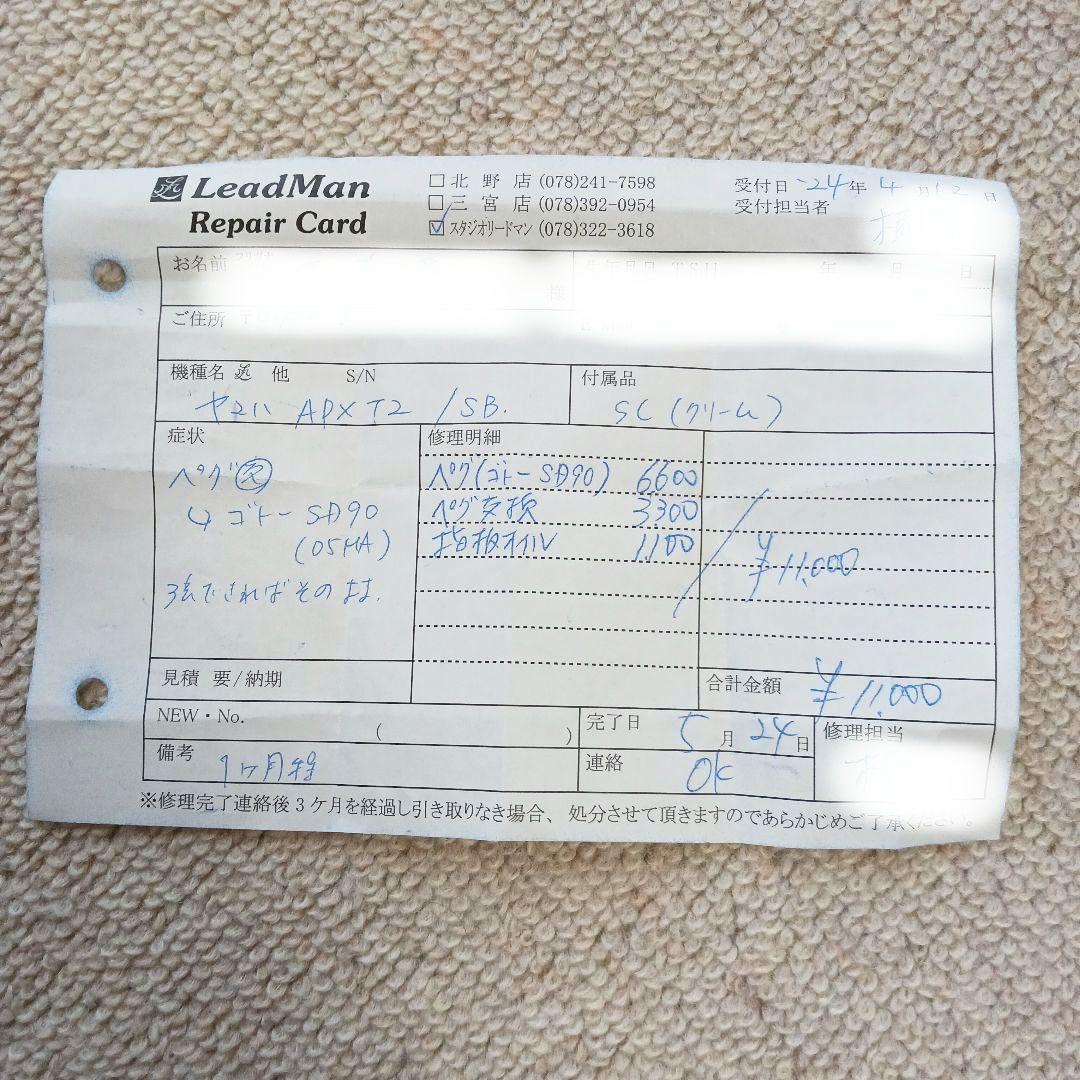 LeadMan
Repair Card
□北野店 (078)241-7598
□三宮店 (078)392-0954
☑スタジオリードマン (078)322-3618
受付日 '24年 4月12日
受付担当者
お名前
様
年 月 日
ご住所
機種名 他 S/N
ヤマハ APXT2 /SB.
付属品
SC(クリーム)
症状
ペグ交
↳ ゴトー SD90
(05MA)
弦できればそのまま.
修理明細
ペグ(ゴトー SD90) 6600
ペグ交換 3300
指板オイル 1,100
¥11,000
見積 要/納期
合計金額 ¥11,000
NEW・No. ( )
完了日 5月24日
修理担当
備考 1ヶ月程
連絡 OK
※修理完了連絡後3ケ月を経過し引き取りなき場合、処分させて頂きますのであらかじめご了承ください。